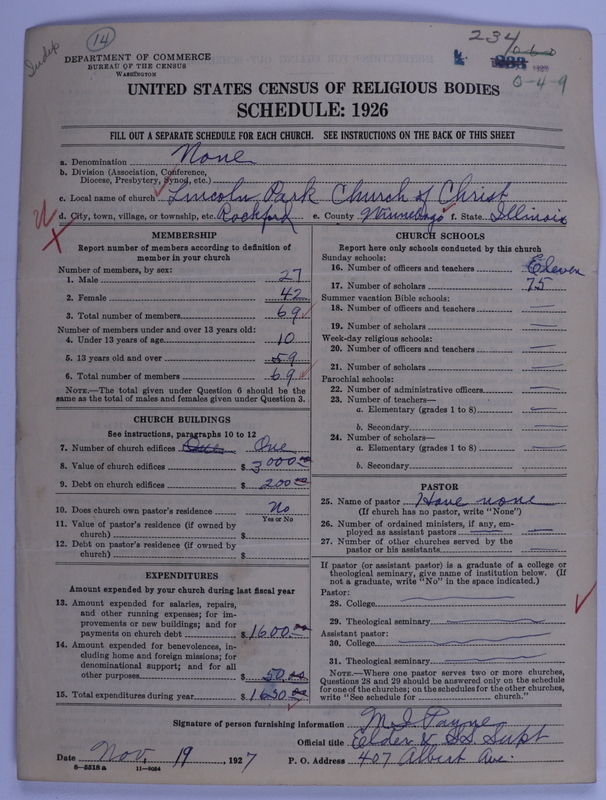 Indep
14
234
060
0-4-9
DEPARTMENT OF COMMERCE
BUREAU OF THE CENSUS
WASHINGTON
UNITED STATES CENSUS OF RELIGIOUS BODIES
SCHEDULE: 1926
FILL OUT A SEPARATE SCHEDULE FOR EACH CHURCH. SEE INSTRUCTIONS ON THE BACK OF THIS SHEET
a. Denomination None
b. Division (Association, Conference,
Diocese, Presbytery, Synod, etc.)
c. Local name of church Lincoln Park Church of Christ
d. City, town, village, or township, etc. Rockford e. County Winnebago f. State Illinois
MEMBERSHIP
Report number of members according to definition of
member in your church
Number of members, by sex:
1. Male 27
2. Female 42
3. Total number of members 69
Number of members under and over 13 years old:
4. Under 13 years of age 10
5. 13 years old and over 59
6. Total number of members 69
NOTE.—The total given under Question 6 should be
the same as the total of males and females given under Question 3.
CHURCH BUILDINGS
See instructions, paragraphs 10 to 12
7. Number of church edifices One One
8. Value of church edifices $ 3000.00
9. Debt on church edifices $ 200.00
10. Does church own pastor's residence No
Yes or No
11. Value of pastor's residence (if owned by
church) $
12. Debt on pastor's residence (if owned by
church) $
EXPENDITURES
Amount expended by your church during last fiscal year
13. Amount expended for salaries, repairs,
and other running expenses; for im-
provements or new buildings; and for
payments on church debt $ 1600.00
14. Amount expended for benevolences, in-
cluding home and foreign missions; for
denominational support; and for all
other purposes $ 50.00
15. Total expenditures during year $ 1650.00
CHURCH SCHOOLS
Report here only schools conducted by this church
Sunday schools:
16. Number of officers and teachers Eleven
17. Number of scholars 75
Summer vacation Bible schools:
18. Number of officers and teachers
19. Number of scholars
Week-day religious schools:
20. Number of officers and teachers
21. Number of scholars
Parochial schools:
22. Number of administrative officers
23. Number of teachers—
a. Elementary (grades 1 to 8)
b. Secondary
24. Number of scholars—
a. Elementary (grades 1 to 8)
b. Secondary
PASTOR
25. Name of pastor Have none
(If church has no pastor, write "None")
26. Number of ordained ministers, if any, em-
ployed as assistant pastors
27. Number of other churches served by the
pastor or his assistants
If pastor (or assistant pastor) is a graduate of a college or
theological seminary, give name of institution below. (If
not a graduate, write "No" in the space indicated.)
Pastor:
28. College
29. Theological seminary
Assistant pastor:
30. College
31. Theological seminary
NOTE.—Where one pastor serves two or more churches,
Questions 28 and 29 should be answered only on the schedule
for one of the churches; on the schedules for the other churches,
write "See schedule for church."
Signature of person furnishing information M. I. Payne
Official title Elder & SS Supt
Date Nov, 19, 1927 P. O. Address 407 Albert Ave.
6—5518 a 11—9024